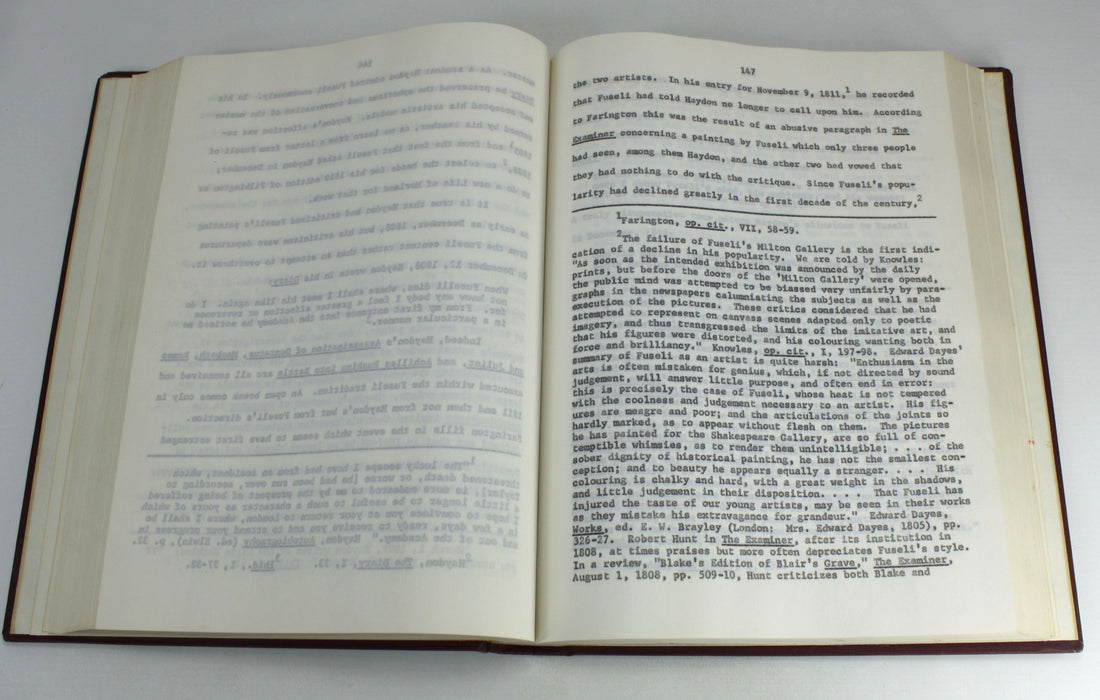 146
master. As a student Haydon courted Fuseli In his
Diary he preserved the aphorisms and conversation of the master
and accepted his artistic models. Haydon's attention was re-
turned by his teacher, as we learn from a letter from Fuseli of
1807¹ and from the fact that Fuseli asked Haydon in December,
1808,² to select the heads for his 1810 edition of Pilkington or
to do a new life of Morland for that work.
It is true that Haydon had criticized Fuseli's painting
as early as December, 1808, but his criticisms were departures
from the Fuseli content rather than an attempt to overthrow it.
On December 12, 1808, Haydon wrote in his Diary:
When Fuseli dies, where shall I meet his like again. I do
not know any body I feel a greater affection or reverence
for. From my first entrance into the Academy he noticed me
in a particular manner.³
Indeed, Haydon's Assassination of Dentatus, Macbeth, Romeo
and Juliet, and Achilles Rushing into Battle are all conceived and
executed within the Fuseli tradition. An open break comes only in
1811 and then not from Haydon's but from Fuseli's direction.
Farington fills in the event which seems to have first estranged
¹"The lucky escape I have had from an accident, which
threatened death, or worse [he had been run over, according to
Taylor], is more endeared to me by the prospect of being suffered
a little longer to be useful to such a character as yours of which
I hope to convince you at your return to London, where I shall be
in a few days, ready to receive you and to attend your progress in
and out of the Academy." Haydon, Autobiography (ed. Elwin), p. 32.
²Haydon, The Diary, I, 39. ³Ibid., I, 37-38.
147
the two artists. In his entry for November 9, 1811,¹ he recorded
that Fuseli had told Haydon no longer to call upon him. According
to Farington this was the result of an abusive paragraph in The
Examiner concerning a painting by Fuseli which only three people
had seen, among them Haydon, and the other two had vowed that
they had nothing to do with the critique. Since Fuseli's popu-
larity had declined greatly in the first decade of the century,²
¹Farington, op. cit., VII, 58-59.
²The failure of Fuseli's Milton Gallery is the first indi-
cation of a decline in his popularity. We are told by Knowles:
"As soon as the intended exhibition was announced by the daily
prints, but before the doors of the 'Milton Gallery' were opened,
the public mind was attempted to be biassed very unfairly by para-
graphs in the newspapers calumniating the subjects as well as the
execution of the pictures. These critics considered that he had
attempted to represent on canvass scenes adapted only to poetic
imagery, and thus transgressed the limits of the imitative art, and
that his figures were distorted, and his colouring wanting both in
force and brilliancy." Knowles, op. cit., I, 197-98. Edward Dayes'
summary of Fuseli as an artist is quite harsh: "Enthusiasm in the
arts is often mistaken for genius, which, if not directed by sound
judgement, will answer little purpose, and often end in error:
this is precisely the case of Fuseli, whose heat is not tempered
with the coolness and judgement necessary to an artist. His fig-
ures are meagre and poor; and the articulations of the joints so
hardly marked, as to appear without flesh on them. The pictures
he has painted for the Shakespeare Gallery, are so full of con-
temptible whimsies, as to render them unintelligible; . . . of the
sober dignity of historical painting, he has not the smallest con-
ception; and to beauty he appears equally a stranger. . . . . His
colouring is chalky and hard, with a great weight in the shadows,
and little judgement in their disposition. . . . . That Fuseli has
injured the taste of our young artists, may be seen in their works
as they mistake his extravagance for grandeur." Edward Dayes,
Works, ed. E. W. Brayley (London: Mrs. Edward Dayes, 1805), pp.
326-27. Robert Hunt in The Examiner, after its institution in
1808, at times praises but more often depreciates Fuseli's style.
In a review, "Blake's Edition of Blair's Grave," The Examiner,
August 1, 1808, pp. 509-10, Hunt criticizes both Blake and